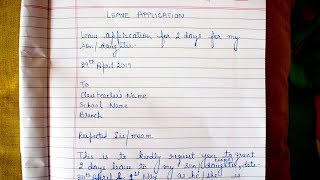 LEAVE APPLICATION
Leave application for 2 days for my
son/daughter.
29th April 2019
To
Class teacher's Name
School Name
Branch
Respected Sir/mam
This is to kindly request you to grant
2 days leave to my son/daughter, date
30th April & 1st May as he/she is